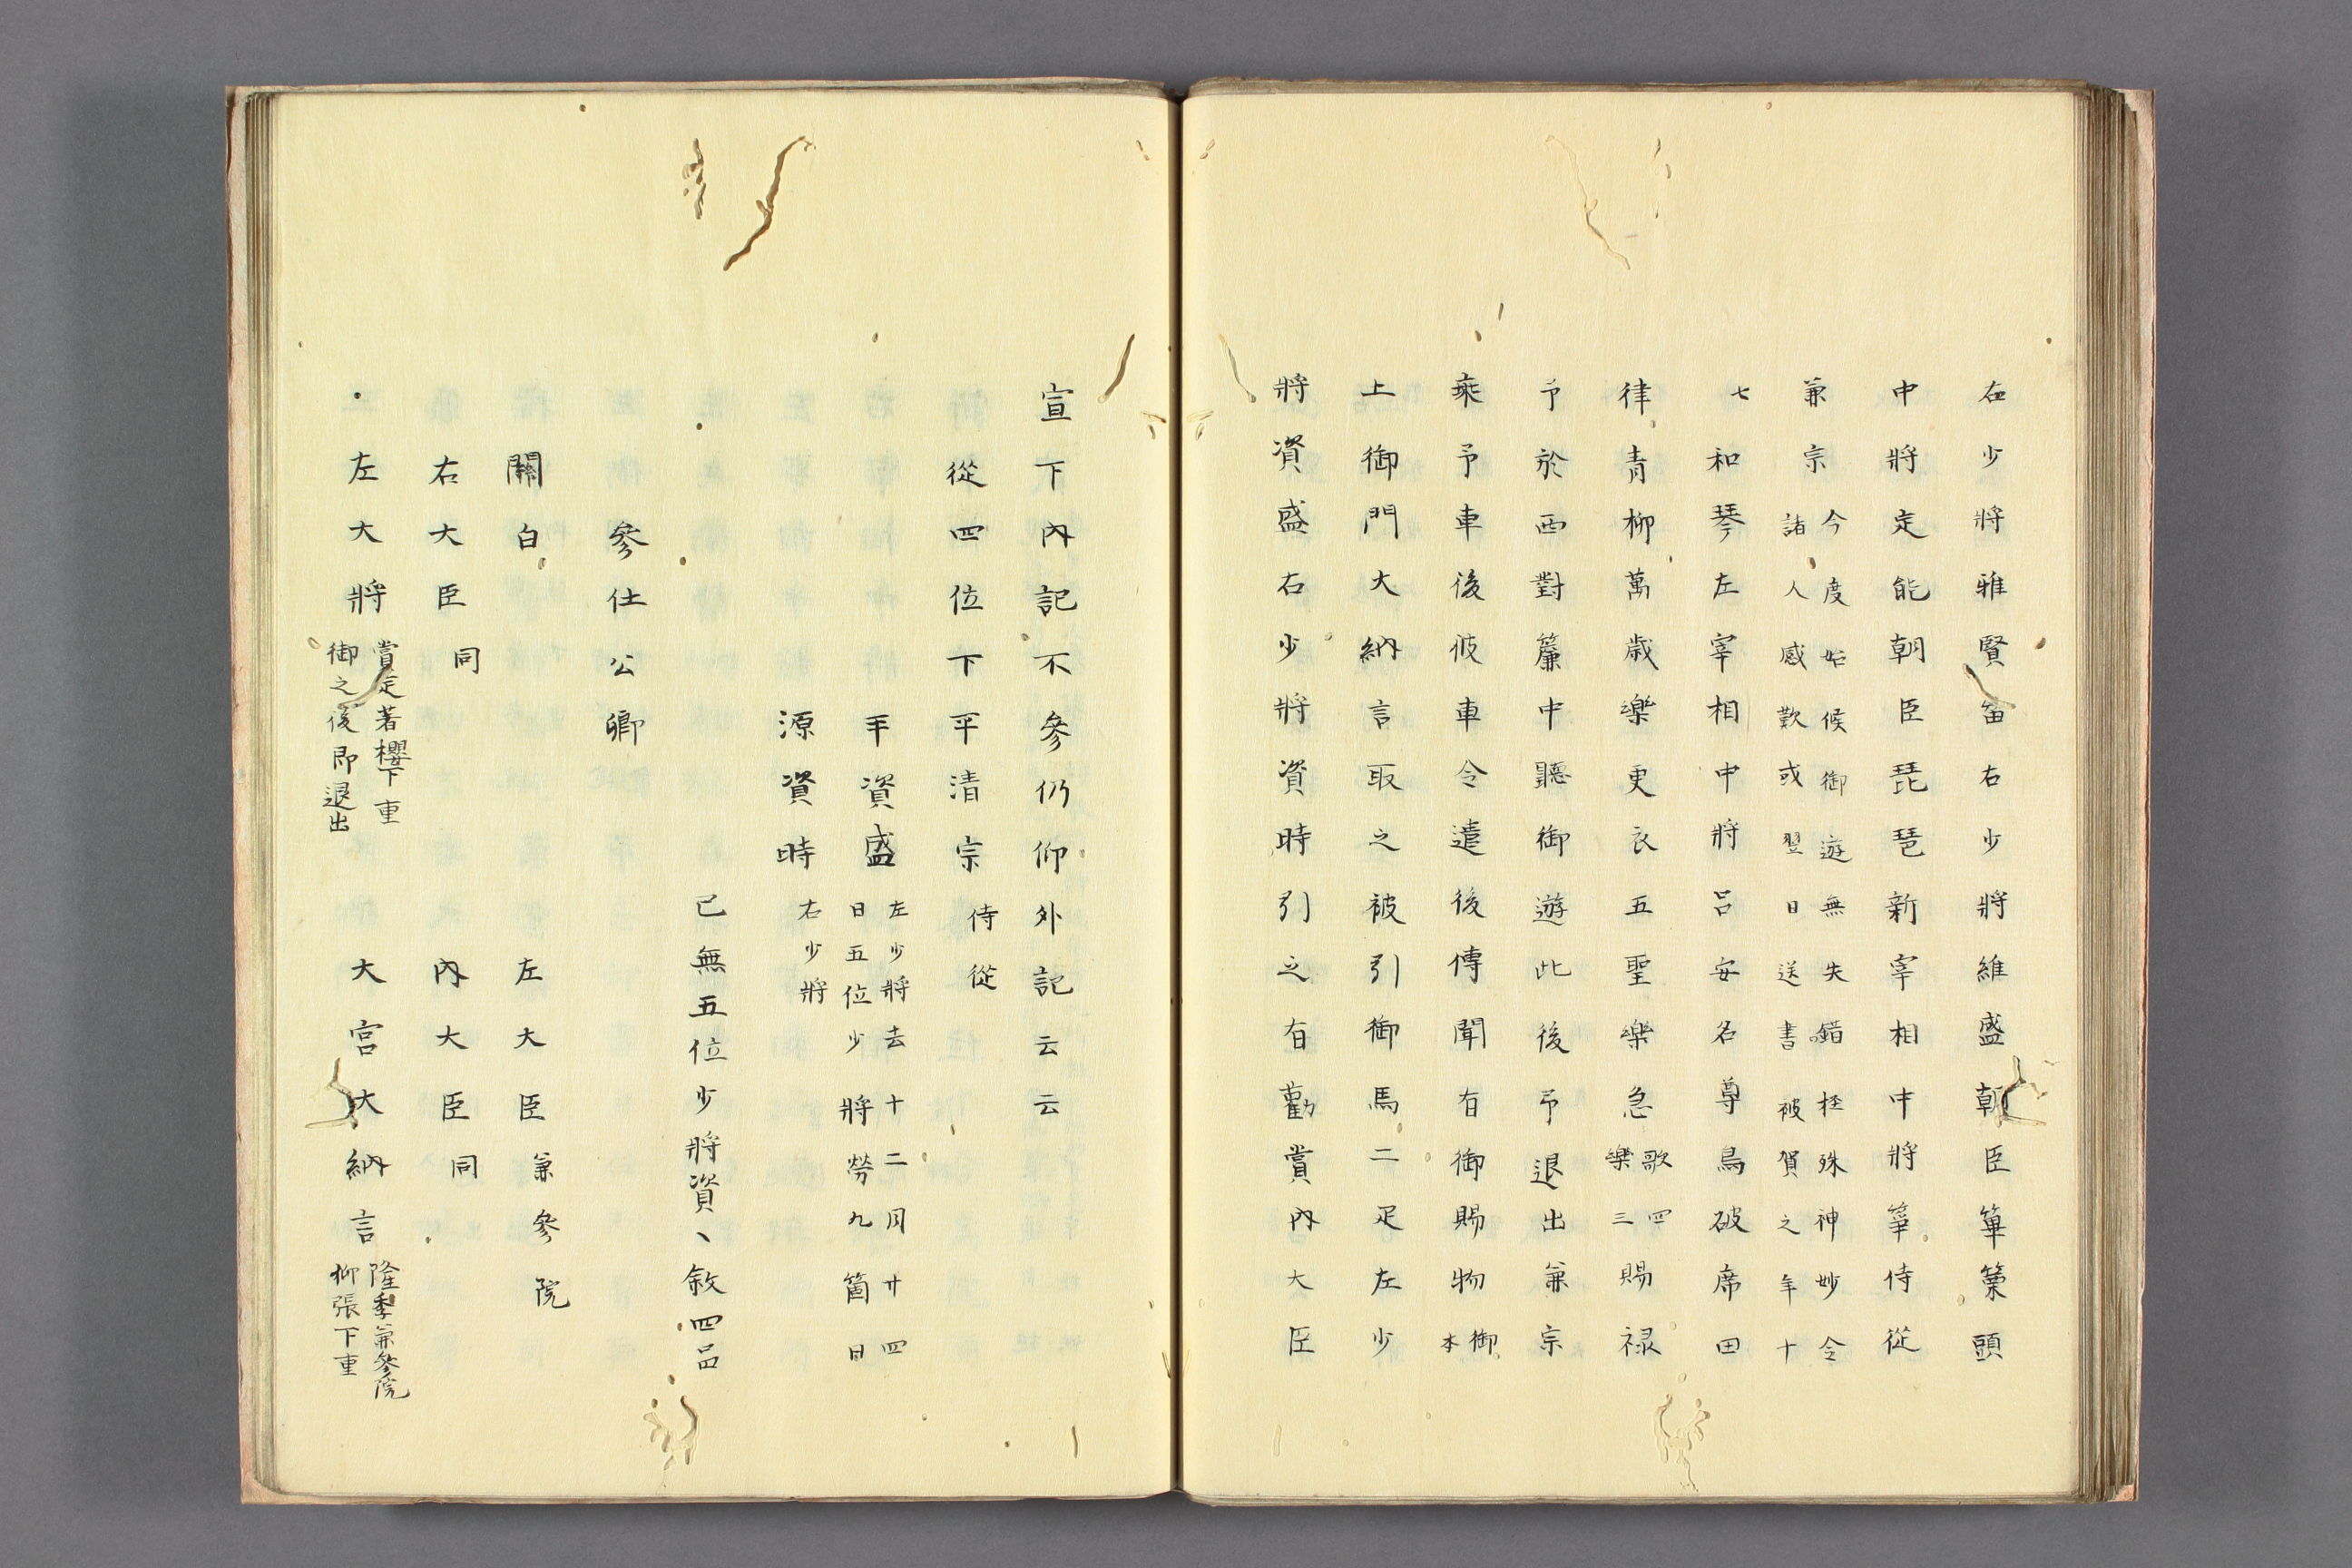 右少將雅賢笛右少將維盛朝臣篳篥頭
中將定能朝臣琵琶新宰相中將箏侍從
兼宗今度始候御遊無失錯柱殊神妙令
諸人感歎或翌日送書被賀之年十
七和琴左宰相中將呂安名尊鳥破席田
律青柳萬歲樂更衣五聖樂急歌四
樂三賜祿
予於西對簾中聽御遊此後予退出兼宗
乘予車後彼車令遣後傳聞有御賜物御
本
上御門大納言取之被引御馬二疋左少
將資盛右少將資時引之有勸賞內大臣
宣下內記不參仍仰外記云云
從四位下平清宗侍從
平資盛左少將去十二月廿四
日五位少將勞九箇日
源資時右少將
已無五位少將資、敘四品
參仕公卿
關白 左大臣兼參院
右大臣同 內大臣同
・左大將賞定著櫻下重
御之後即退出 大宮大納言隆季兼參院
柳張下重